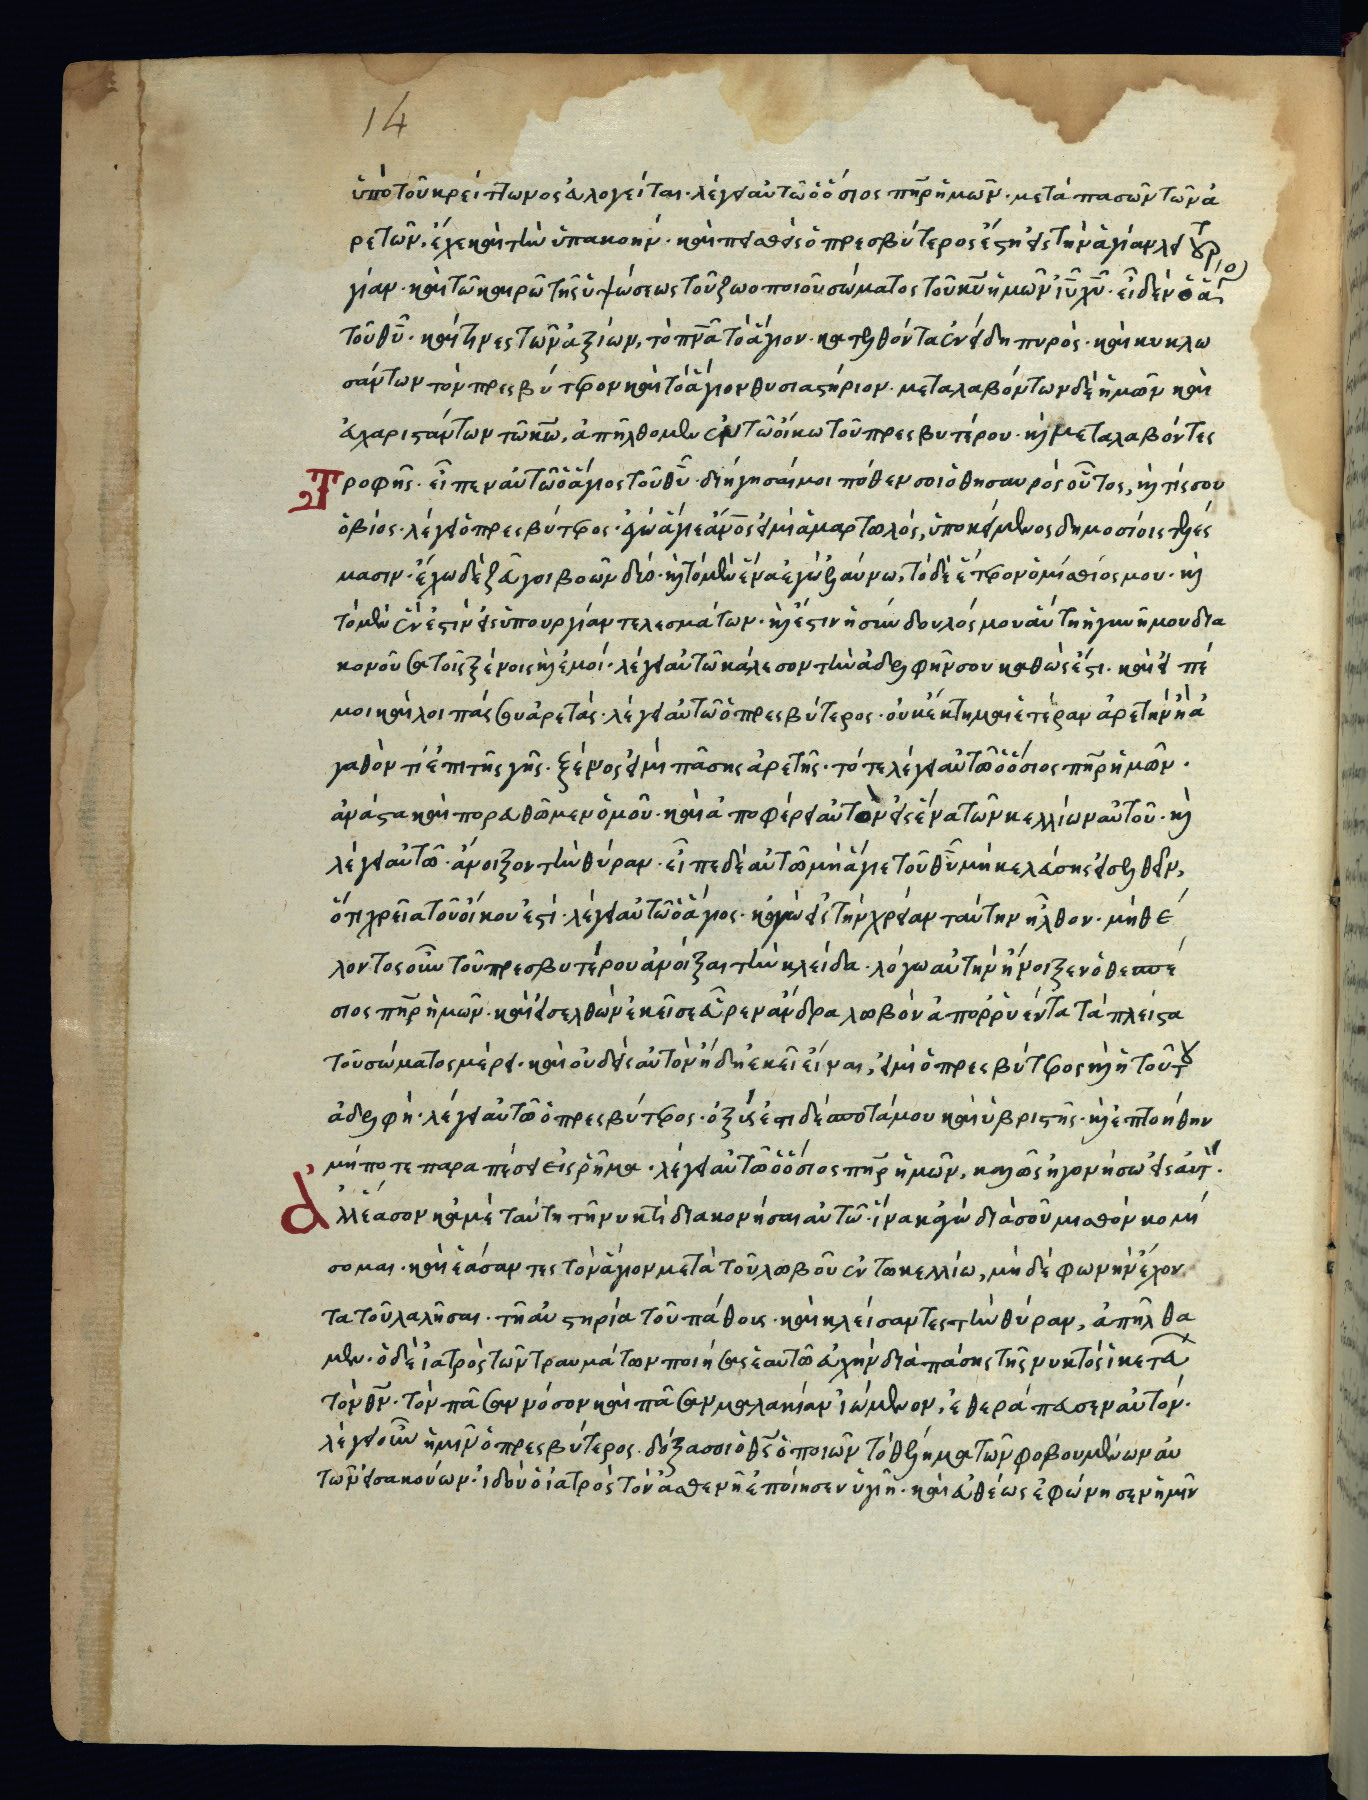 14
ὑπὸ τοῦ κρείττωνος εὐλογεῖται· λέγει αὐτῶ ὁ ὅσιος πη̃ρ ἡμῶν· μετὰ πασῶν τῶν ἀ
ρετῶν, ἔχε καὶ τὴν ὑπακοήν· καὶ πεισθεὶς ὁ πρεσβύτερος ἔστη εἰς τὴν ἁγίαν λειτουρ
γίαν· καὶ τῶ καιρῶ τῆς ὑψώσεως τοῦ ζωοποιοῦ σώματος τοῦ κυ̃ ἡμῶν ιυ̃ χυ̃· εἶδεν ὁ ἅγιο)
τοῦ θυ̃· καί τινες τῶν ἀξίων, τὸ πνα̃ τὸ ἅγιον· κατελθόντα ἐν εἴδη πυρὸς· καὶ κυκλω
σάντων τὸν πρεσβύτερον καὶ τὸ ἅγιον θυσιαστήριον· μεταλαβόντων δὲ ἡμῶν καὶ
εὐχαριστάντων τῶ κω̃, ἀπήλθομεν ἐν τῶ οἴκω τοῦ πρεσβυτέρου· κὶ μεταλαβόντες
τροφῆς· εἶπεν αὐτῶ ὁ ἅγιος τοῦ θυ̃· διήγησαί μοι πόθεν σοι ὁ θησαυρὸς οὗτος, κὶ τίς σου
ὁ βίος· λέγει ὁ πρεσβύτερος· ἐγὼ ἅγιε ἀνο̃ς εἰμὶ ἁμαρτωλός, ὑποκείμενος δημοσίοις τελές
μασιν· ἔχω δὲ ζεῦγοι βοῶν δύο· κὶ τὸ μὲν ἕνα ἐγὼ ἐλαύνω, τὸ δὲ ἕτερον ὁ μίσθιός μου· κὶ
τὸ μὲν ἕν ἐστιν εἰς ὑπουργίαν τελεσμάτων· κὶ ἔστιν ἡ σύνδουλός μου αὕτη ἡ γυνή μου δια
κονοῦσα τοῖς ξένοις κὶ ἐμοί· λέγει αὐτῶ κάλεσον τὴν ἀδελφήν σου καθώς ἐστι· καὶ εἰπέ
μοι καὶ λοιπάς σου ἀρετάς· λέγει αὐτῶ ὁ πρεσβύτερος· οὐ κέκτημαι ἑτέραν ἀρετὴν ἢ ἀ
γαθὸν τί ἐπι τῆς γῆς· ξένος εἰμὶ πάσης ἀρετῆς· τότε λέγει αὐτῶ ὁ ὅσιος πη̃ρ ἡμῶν·
ἀνάστα καὶ πορευθῶμεν ὁμοῦ· καὶ ἀποφέρει αὐτὸν εἰς ἕνα τῶν κελλίων αὐτοῦ· κὶ
λέγει αὐτῶ· ἄνοιξον τὴν θύραν· εἶπε δὲ αὐτῶ μὴ ἅγιε τοῦ θυ̃ μὴ κελεύσης εἰσελθεῖν,
ὅτι χρεῖα τοῦ οἴκου ἐστί· λέγει αὐτῶ ὁ ἅγιος· κἀγὼ εἰς τὴν χρείαν ταύτην ἦλθον· μὴ θέ
λοντος οὖν τοῦ πρεσβυτέρου ἀνοίξαι τὴν κλείδα· λόγω αὐτὴν ἤνοιξεν ὁ θεσπέ
σιος πη̃ρ ἡμῶν· καὶ εἰσελθὼν ἐκεῖσε εὗρεν ἄνδρα λωβὸν ἀπορρυέντα τὰ πλεῖστα
τοῦ σώματος μέρει· καὶ οὐδεὶς αὐτὸν ἤδη ἐκεῖ εἶναι, εἰμὶ ὁ πρεσβύτερος κὶ ἡ τούτου
ἀδελφή· λέγει αὐτῶ ὁ πρεσβύτερος· ὀξύς ἐτι δέσποτά μου καὶ ὑβριστής· κὶ ἐπτοήθην
μήποτε παραπέσει εἰς ῥῆμα· λέγει αὐτῶ ὁ ὅσιος πη̃ρ ἡμῶν, καλῶς ἠγονήσω εἰς αὐτ·
ἀλλ' ἔασον κἀμὲ ταύτη τῆ νυκτὶ διακονήσαι αὐτῶ· ἵνα κἀγὼ διὰ σοῦ μισθὸν κομί
σομαι· καὶ ἐάσαντες τὸν ἅγιον μετὰ τοῦ λωβοῦ ἐν τῶ κελλίω, μὴ δὲ φωνὴν ἔχον
τα τοῦ λαλῆσαι· τῆ αὐστηρία τοῦ πάθους· καὶ κλείσαντες τὴν θύραν, ἀπήλθα
μεν· ὁ δὲ ἰατρὸς τῶν τραυμάτων ποιήσας ἑαυτῶ εὐχὴν διὰ πάσης τῆς νυκτὸς ἱκετεύ
τὸν θν̃· τὸν πᾶσαν νόσον καὶ πᾶσαν μαλακίαν ἰώμενον, ἐθεράπευσεν αὐτόν·
λέγει οὖν ἡμῖν ὁ πρεσβύτερος· δόξα σοι ὁ θς̃ ὁ ποιῶν τὸ θέλημα τῶν φοβουμένων αὐ
τῶν εἰσακούων· ἰδοὺ ὁ ἰατρὸς τὸν ἀσθενῆ ἐποίησεν ὑγιῆ· καὶ εὐθέως ἐφώνησεν ἡμῖν